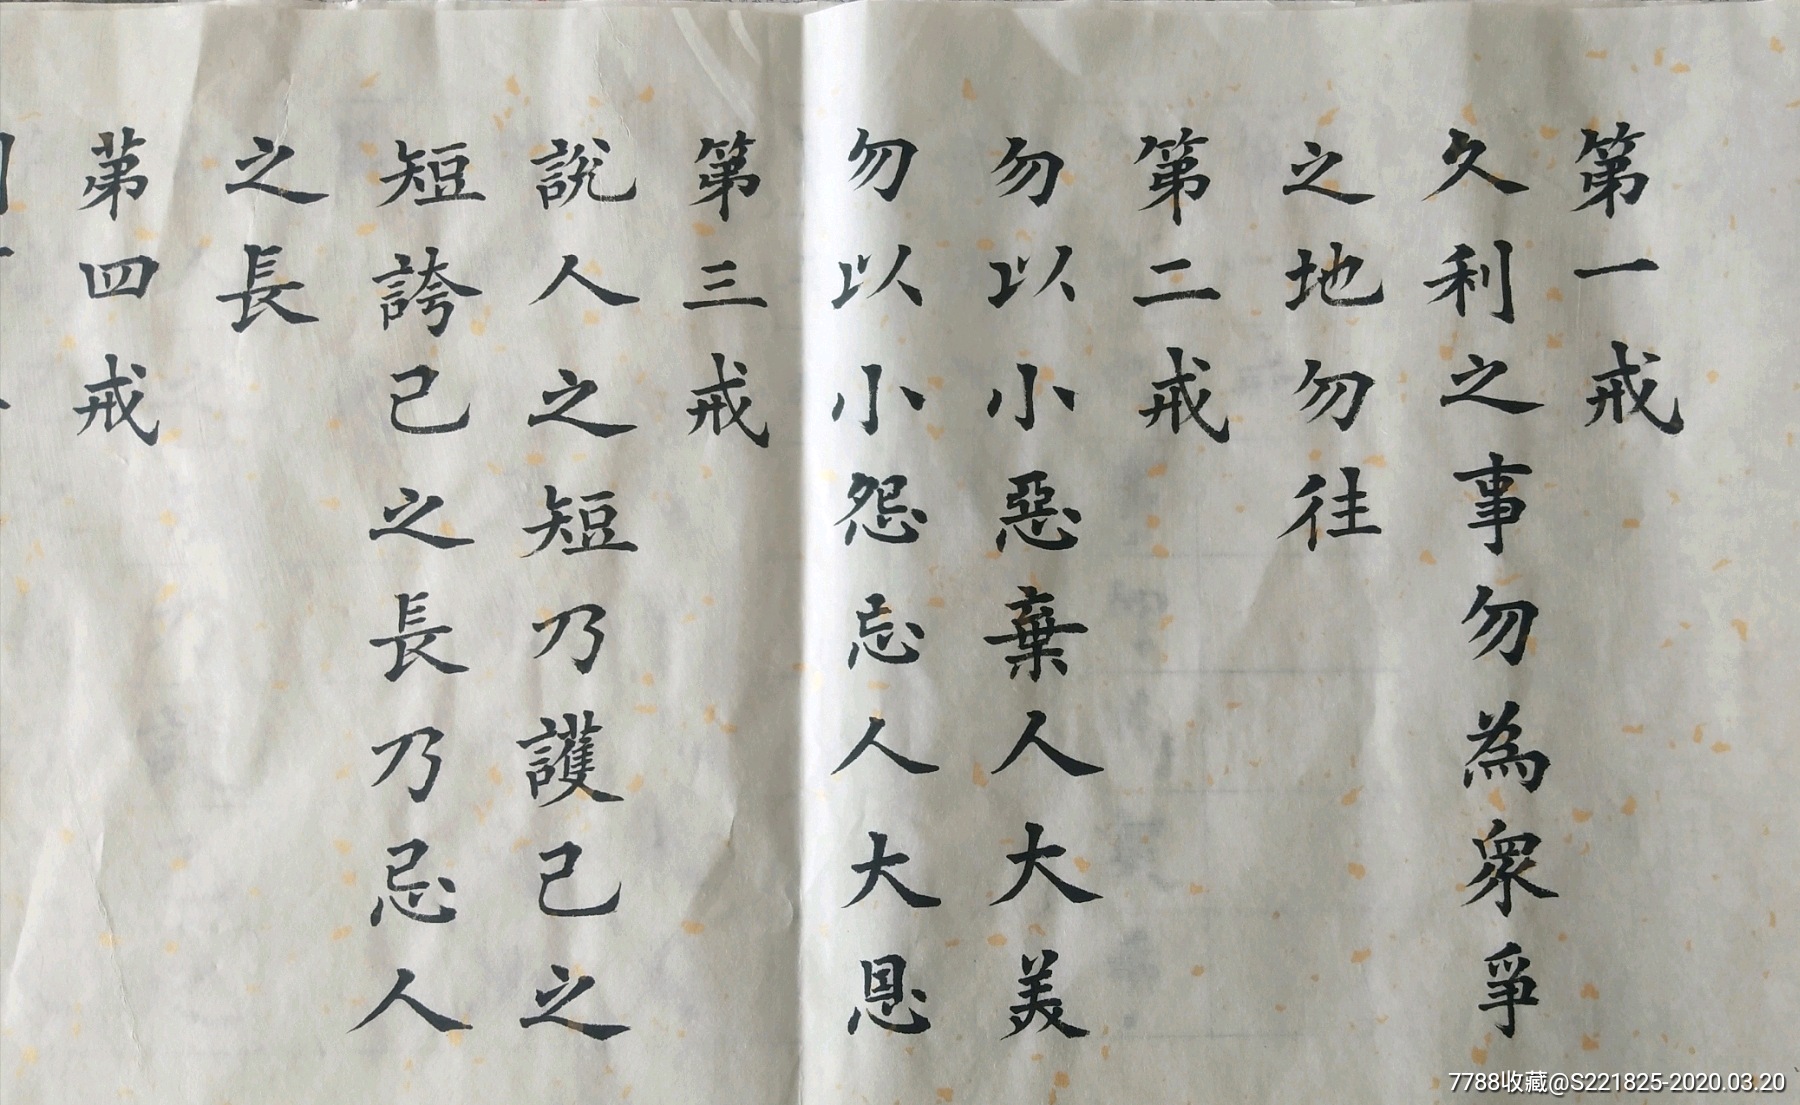 第一戒
久利之事勿為衆爭
之地勿往
第二戒
勿以小惡棄人大美
勿以小怨忘人大恩
第三戒
説人之短乃護己之
短誇己之長乃忌人
之長
第四戒
7788收藏@S221825-2020.03.20